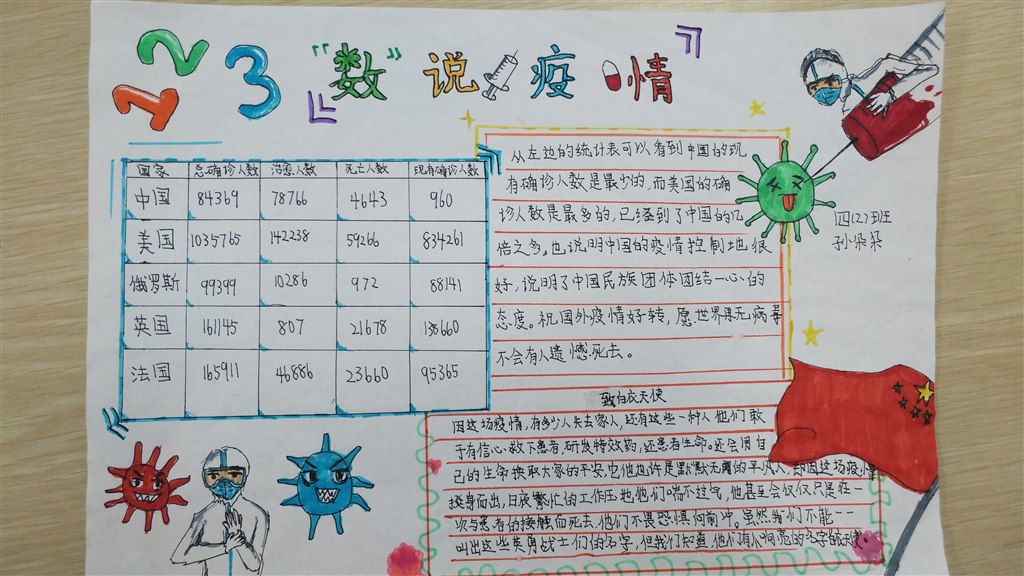 1 2 3 "数"说疫情
国家 总确诊人数 治愈人数 死亡人数 现有确诊人数
中国 84369 78766 4643 960
美国 1035765 142238 59266 834261
俄罗斯 99399 10286 972 88141
英国 161145 807 21678 138660
法国 165911 46886 23660 95365
从左边的统计表可以看到中国的现
有确诊人数是最少的,而美国的确
诊人数是最多的,已经到了中国的几
倍之多,也说明中国的疫情控制地很
好,说明了中国民族团体团结一心的
态度。祝国外疫情好转,愿世界再无病毒
不会有人遗憾死去。
四(2)班
孙朵朵
致白衣天使
因这场疫情,有多少人失去家人,还有这些一种人他们敢
于有信心救下患者,研发特效药,还患者生命。还会用自
己的生命换取大家的平安,它他也许是默默无闻的平凡人,却因这场疫情
挺身而出,日夜繁忙的工作压地他们喘不过气,他甚至会仅仅只是在一
次与患者的接触而死去,他们不畏恐惧向前冲。虽然我们不能一一
叫出这些英勇战士们的名字,但我们知道他们有个响亮的名字白衣天使。